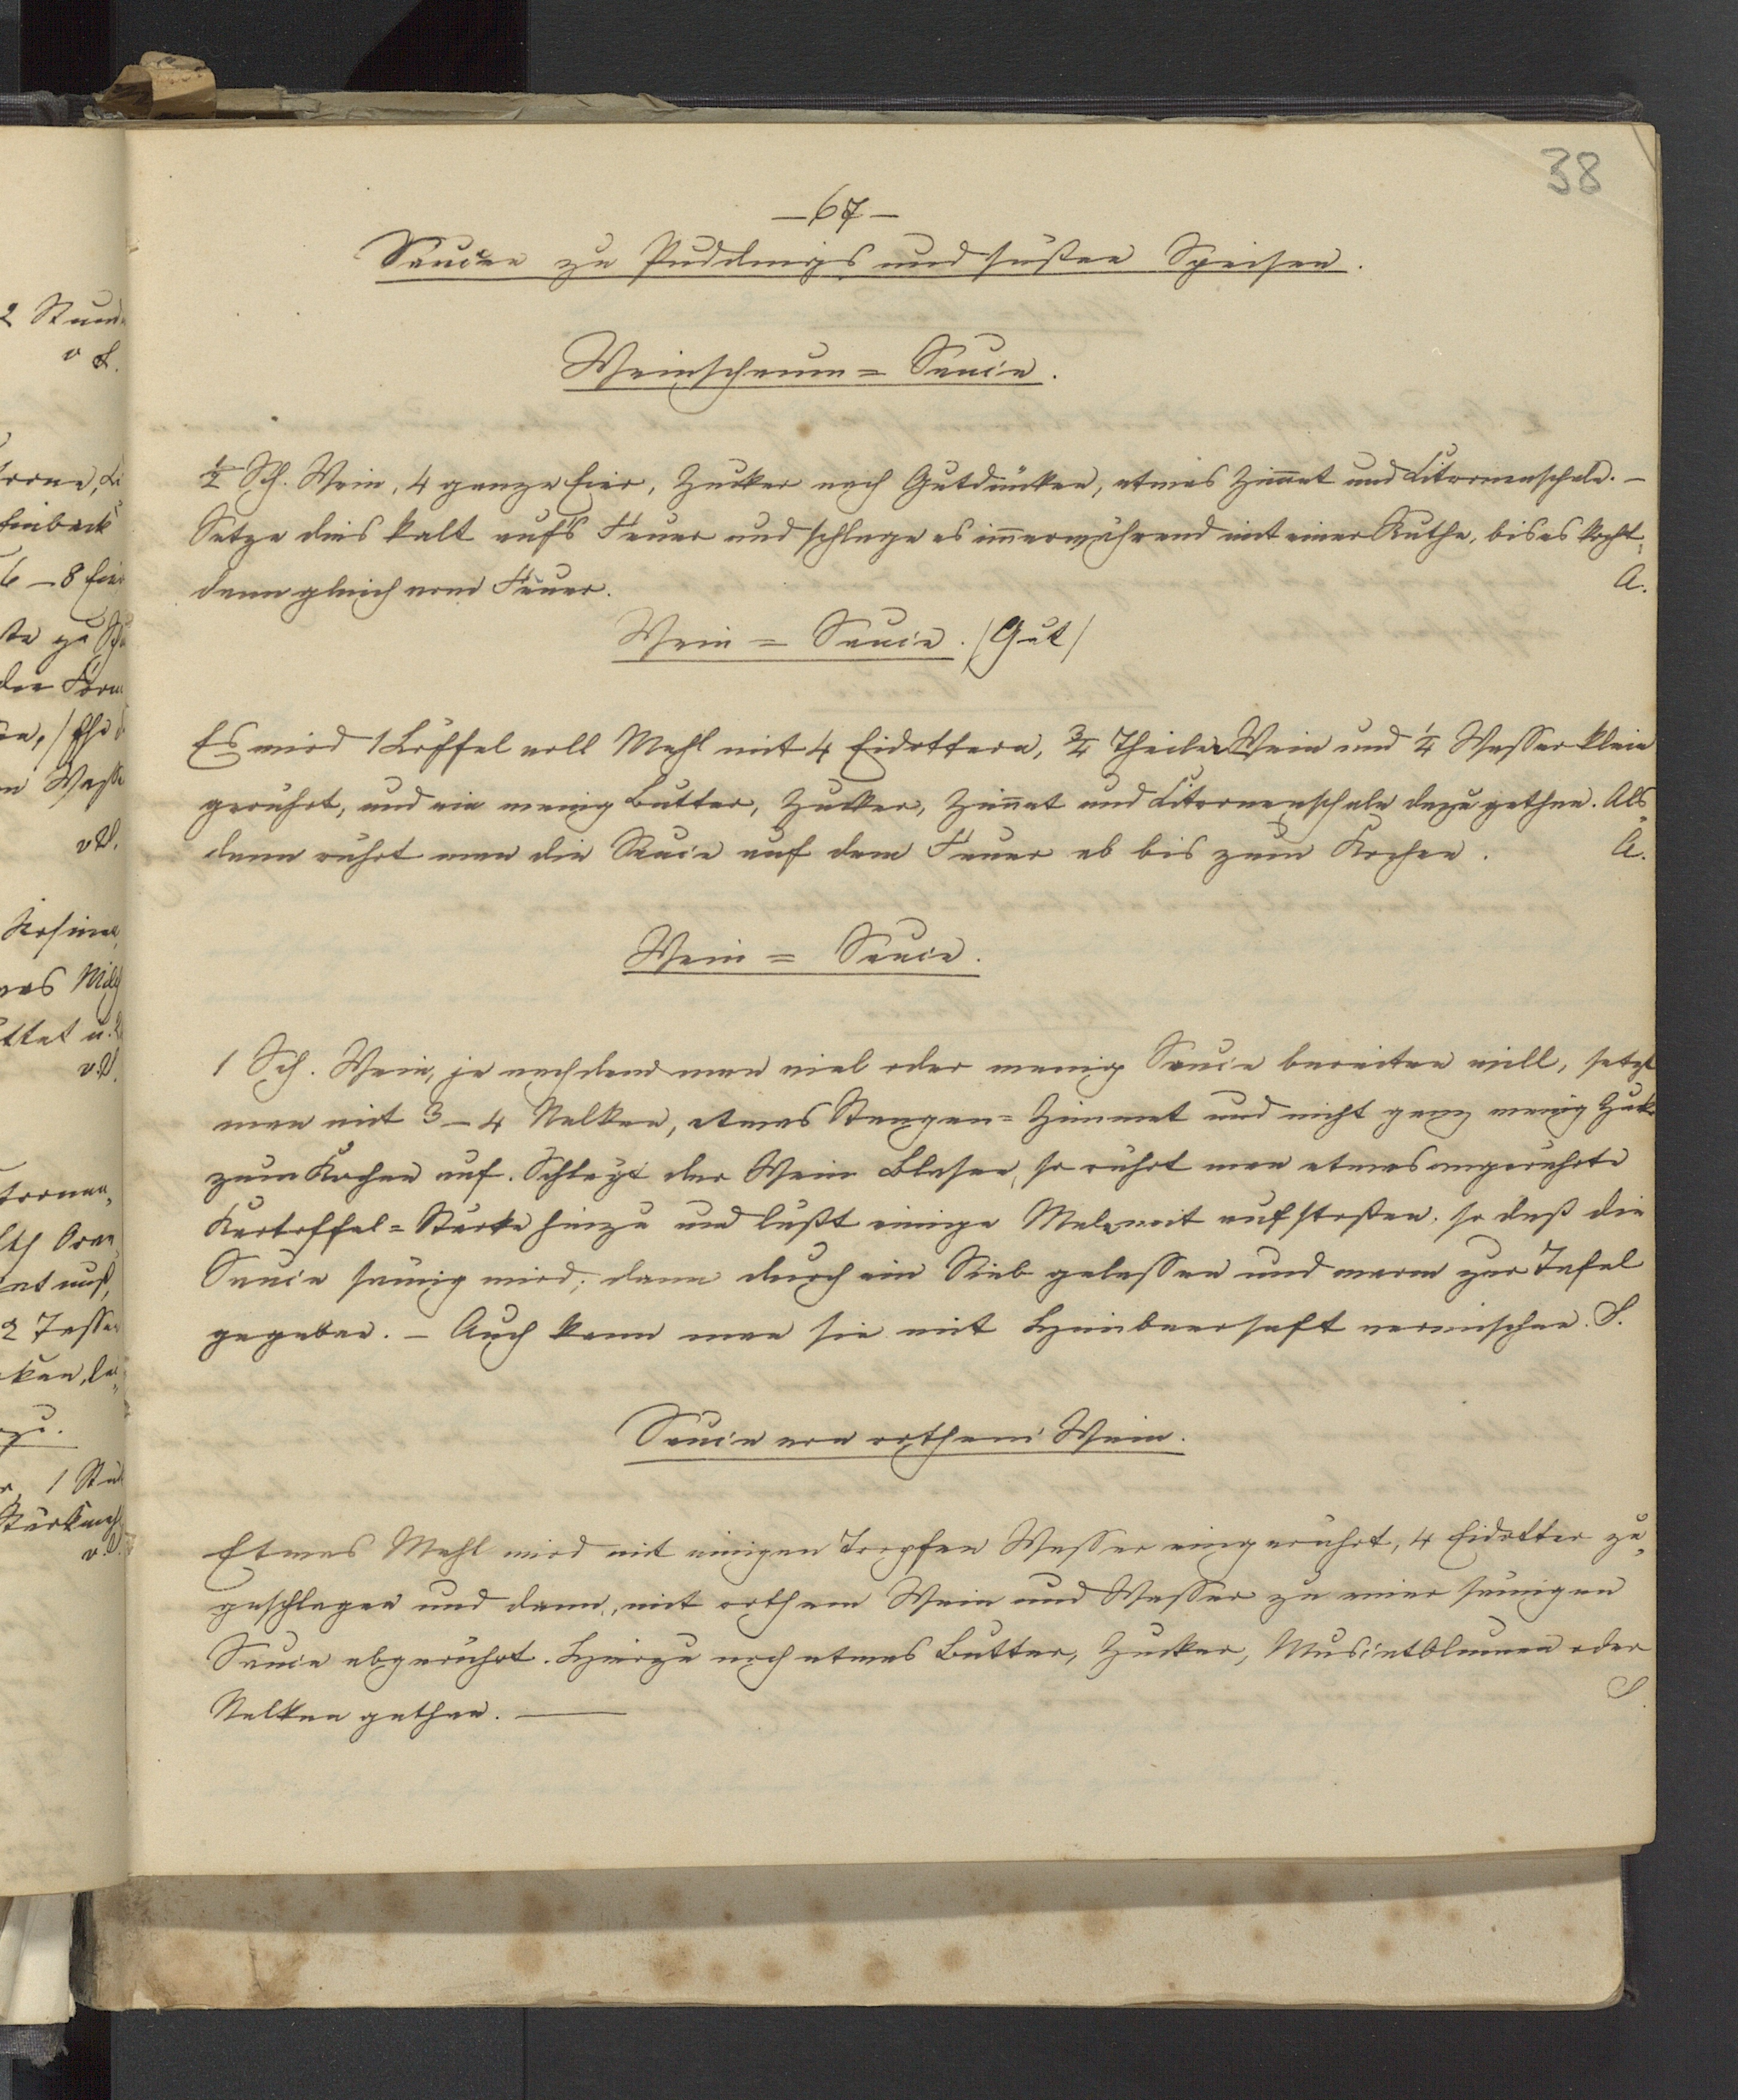 38
— 67 —
Saucen zu Puddings und süßen Speisen.
Weinschaum = Sauce.
½ Sch. Wein, 4 ganze Eier, Zucker nach Gutdünken, etwas Zim̄et und Citronenschale. —
Setze dies kalt auf's Feuer und schlage es im̄erwährend mit einer Ruthe, bis es kocht;
dann gleich vom Feuer. A.
Wein = Sauce. /Gut/
Es wird 1 Löffel voll Mehl mit 4 Eidottern, ¾ Theile Wein und ¼ Wasser klein
gerührt, und ein wenig Butter, Zucker, Zim̄et und Citronenschale dazu gethan. Als„
dann rührt man die Sauce auf dem Feuer ab bis zum Kochen. A.
Wein = Sauce.
1 Sch. Wein, je nachdem man viel oder wenig Sauce bereiten will, setzt
man mit 3 – 4 Nelken, etwas Stangen = Zimmet und nicht ganz wenig Zuck
zum Kochen auf. Schlägt der Wein Blasen, so rührt man etwas angerührte
Kartoffel = Stärke hinzu und läßt einige Male mit aufstoßen, so daß die
Sauce sämig wird; dann durch ein Sieb gelassen und warm zur Tafel
gegeben. — Auch kann man sie mit Himbeersaft vermischen. S.
Sauce von rothem Wein.
Etwas Mehl wird mit einigen Tropfen Wasser eingerührt, 4 Eidotter zu„
geschlagen und dann, mit rothem Wein und Wasser zu einer sämigen
Sauce abgerührt. Hierzu noch etwas Butter, Zucker, Muscatblumen oder
Nelken gethan. — S.